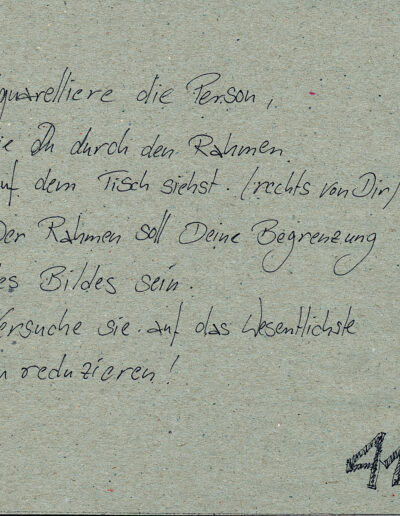 quarelliere die Person,
ie Du durch den Rahmen
uf dem Tisch siehst. (rechts von Dir)
Der Rahmen soll Deine Begrenzung
es Bildes sein.
ersuche sie auf das Wesentlichste
u reduzieren!
11